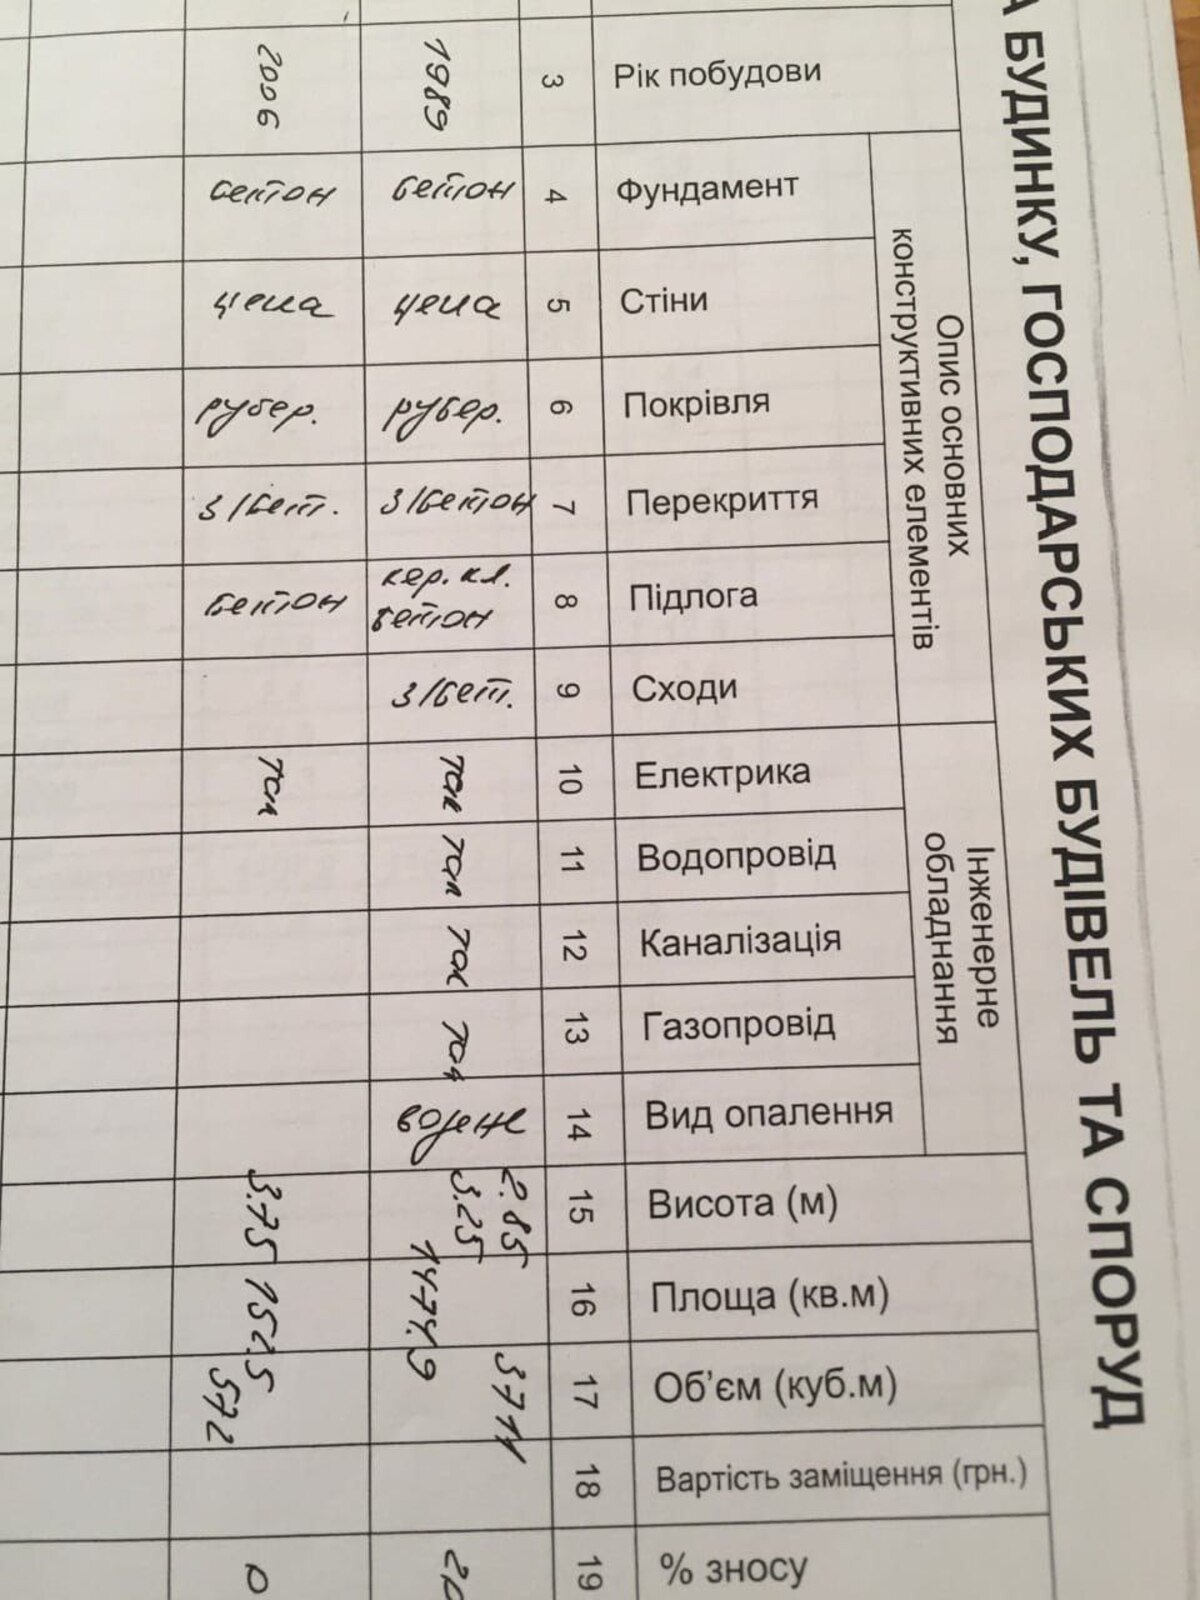 А БУДИНКУ, ГОСПОДАРСЬКИХ БУДІВЕЛЬ ТА СПОРУД
Опис основних
конструктивних елементів
Інженерне
обладнання
Рік побудови
Фундамент
Стіни
Покрівля
Перекриття
Підлога
Сходи
Електрика
Водопровід
Каналізація
Газопровід
Вид опалення
Висота (м)
Площа (кв.м)
Об'єм (куб.м)
Вартість заміщення (грн.)
% зносу
3 4 5 6 7 8 9 10 11 12 13 14 15 16 17 18 19
1989
бетон
цегла
рубер.
з/бетон
кер. кл.
бетон
з/бет.
так
так
так
так
водяне
2.85
3.25
1474.9
3711
20
2006
бетон
цегла
рубер.
з/бет.
бетон
так
3.75
152.5
572
0